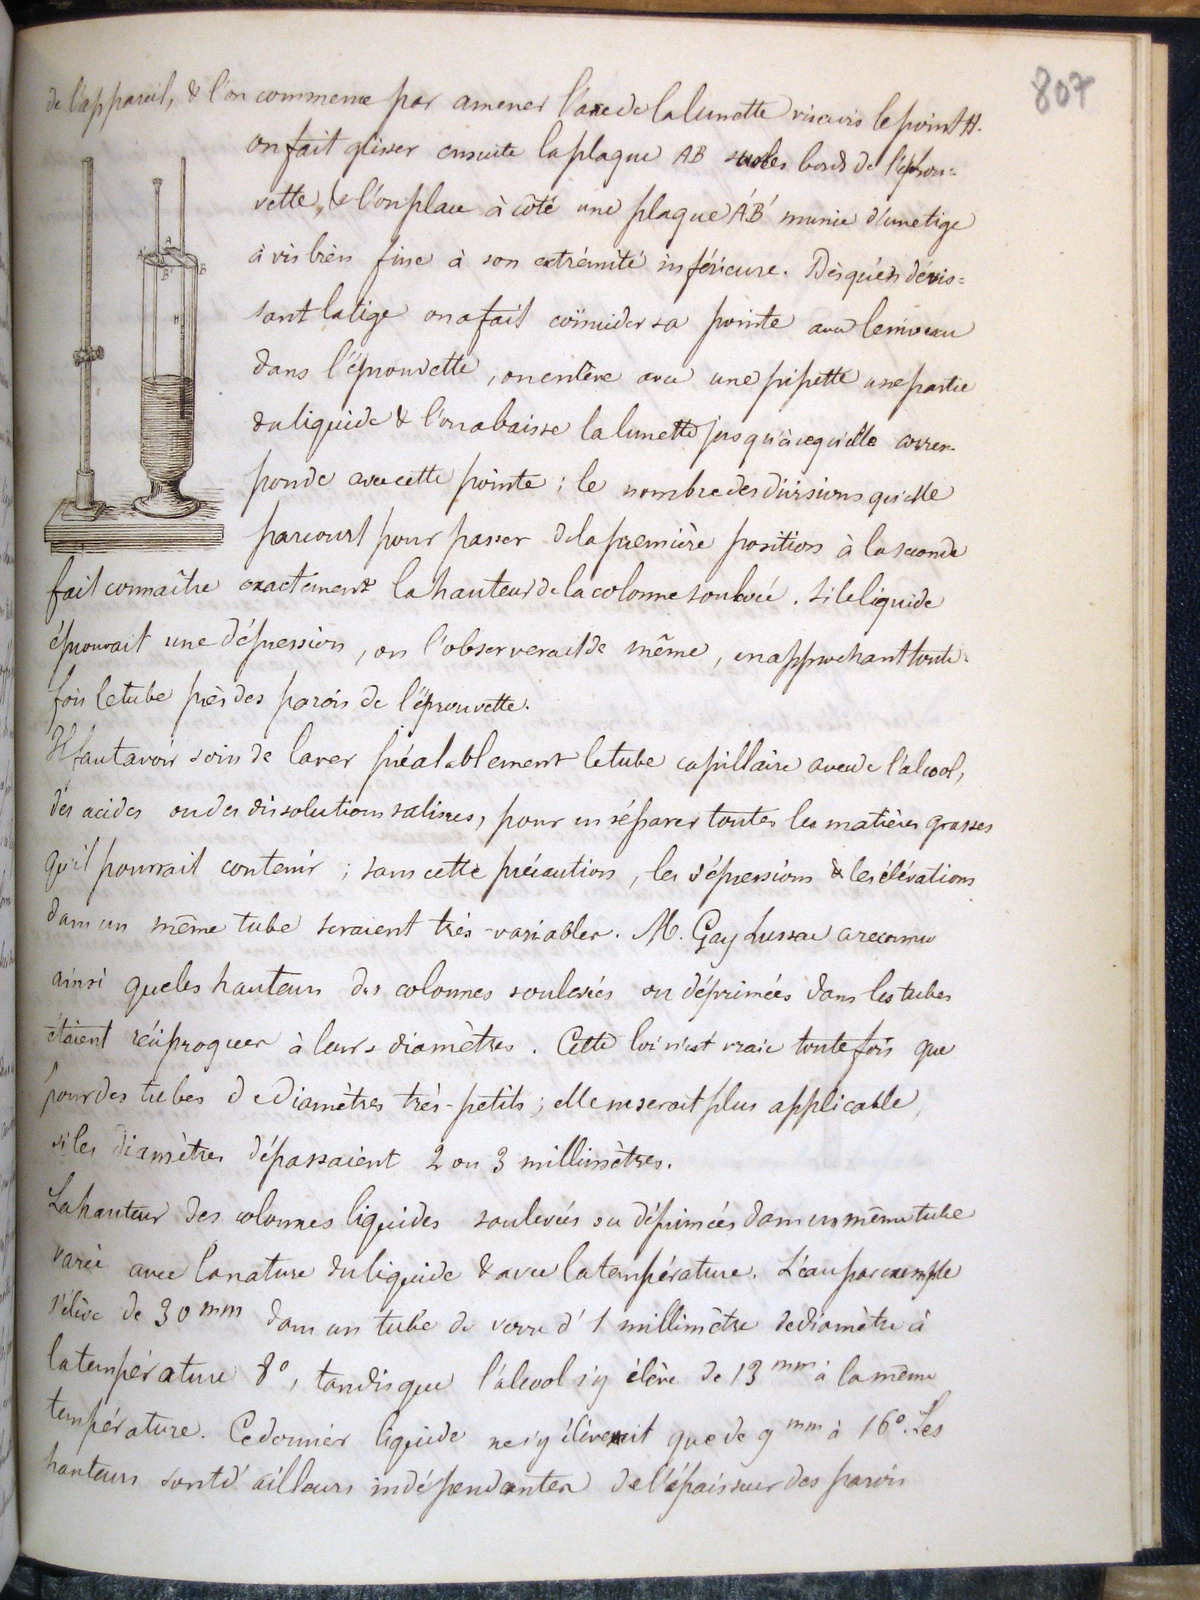 807
de l'appareil, & l'on commence par amener l'axe de la lunette vis a vis le point H.
on fait glisser ensuite la plaque AB sur les bords de l'éprou=
vette, & l'on place à côté une plaque A'B' munie d'une tige
à vis bien fine à son extrémité inférieure. Dès qu'en dévis=
sant la tige on a fait coïncider sa pointe avec le niveau
dans l'éprouvette, on enlève avec une pipette une partie
du liquide & l'on abaisse la lunette jusqu'à ce qu'elle corres-
ponde avec cette pointe ; le nombre des divisions qu'elle
parcourt pour passer de la première position à la seconde
fait connaître exactement la hauteur de la colonne soulevée. Si le liquide
éprouvait une dépression, on l'observerait de même, en approchant toute=
fois le tube près des parois de l'éprouvette.
Il faut avoir soin de laver préalablement le tube capillaire avec de l'alcool,
des acides ou des dissolutions salines, pour en séparer toutes les matières grasses
qu'il pourrait contenir ; sans cette précaution, les dépressions & les élévations
dans un même tube seraient très-variables. M. Gay Lussac a reconnu
ainsi que les hauteurs des colonnes soulevées ou déprimées dans les tubes
étaient réciproques à leurs diamètres. Cette loi n'est vraie toutefois que
pour des tubes de diamètres très-petits ; elle ne serait plus applicable,
si les diamètres dépassaient 2 ou 3 millimètres.
La hauteur des colonnes liquides soulevées ou déprimées dans un même tube
varie avec la nature du liquide & avec la température. L'eau par exemple
s'élève de 30 mm dans un tube de verre d'1 millimètre de diamètre à
la température 8°, tandis que l'alcool s'y élève de 13 mm à la même
température. Ce dernier liquide ne s'y élèverait que de 9 mm à 16°. Les
hauteurs sont d'ailleurs indépendantes de l'épaisseur des parois